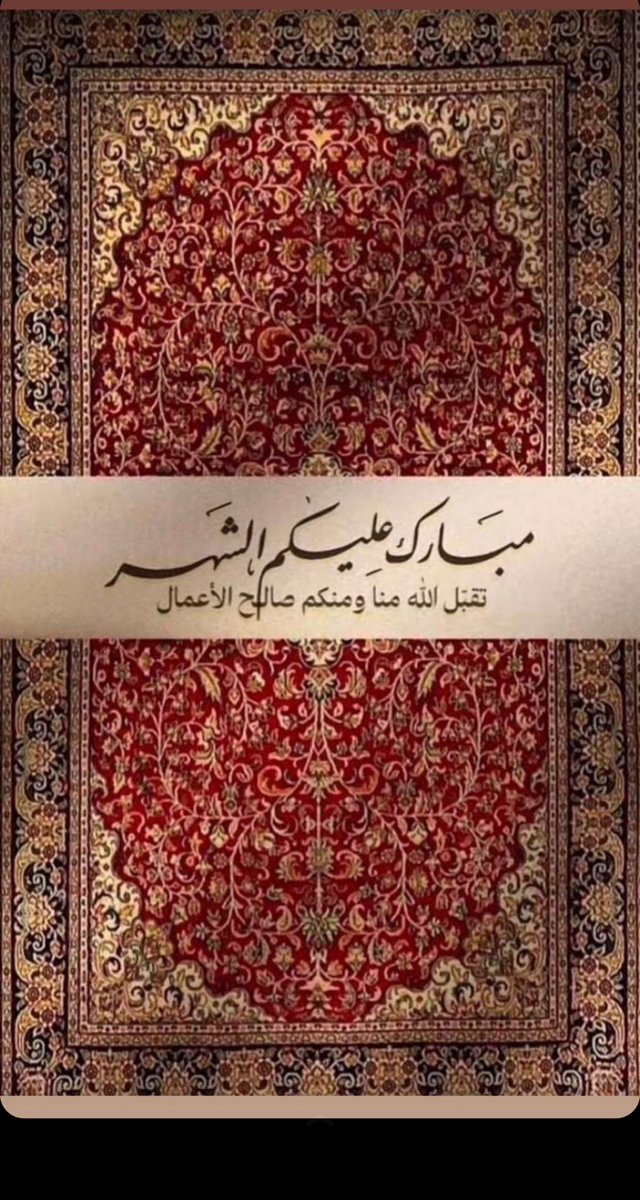 مبارك عليكم الشهر
تقبّل الله منا ومنكم صالح الأعمال